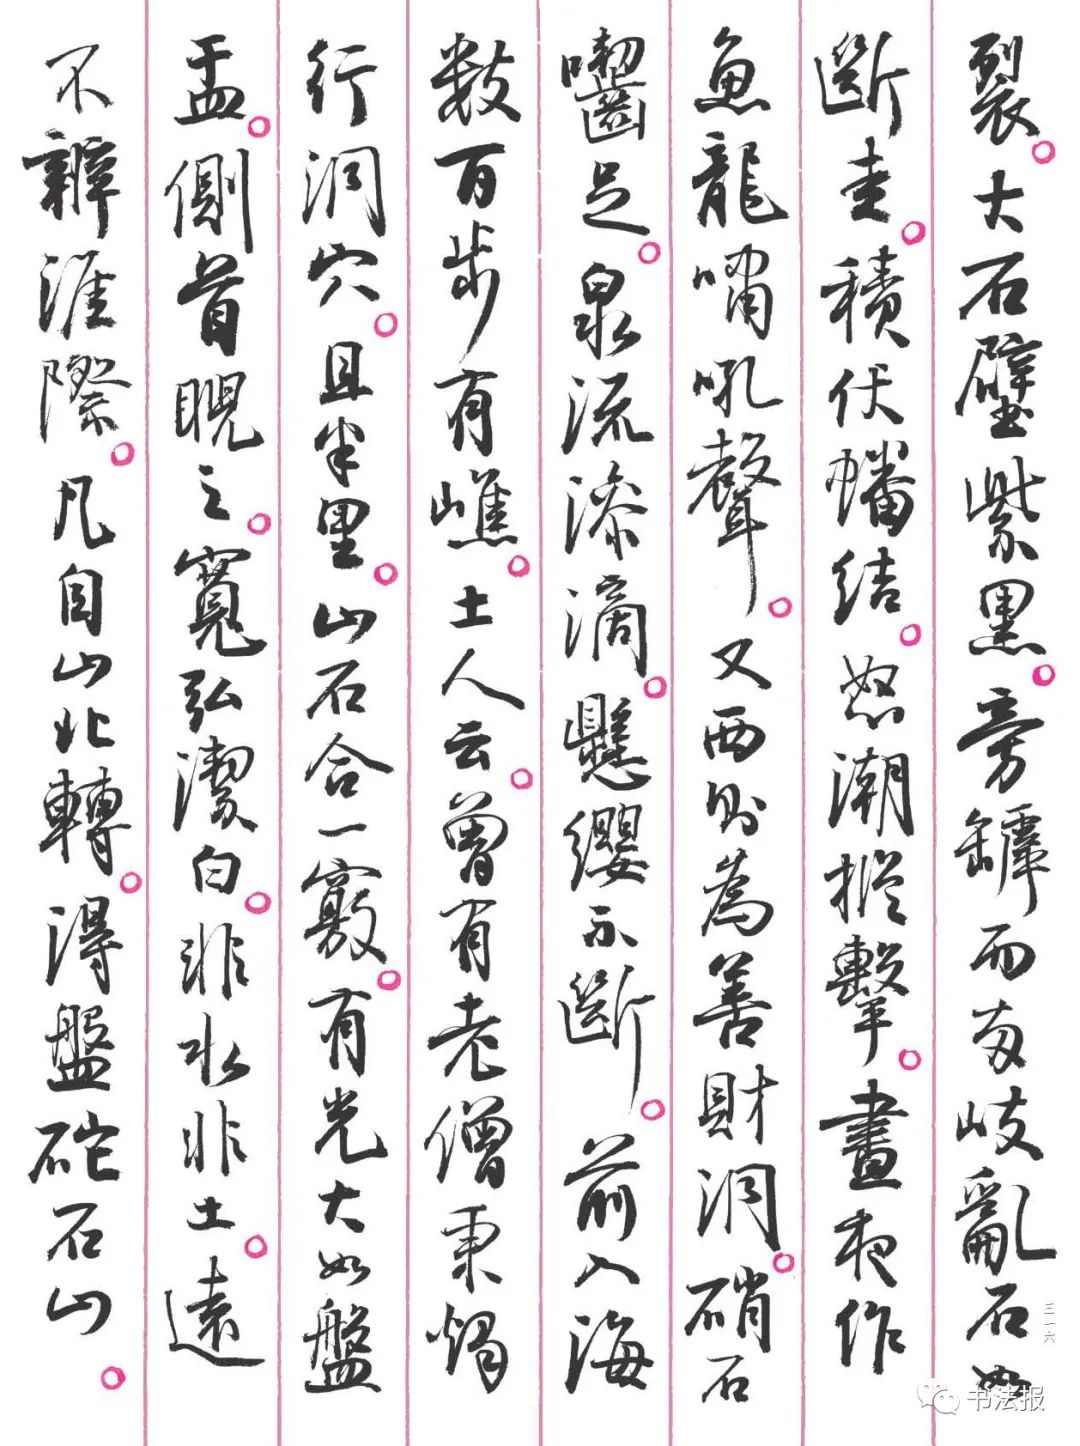 裂。大石壁紫黑。旁罅而兩岐亂石如
斷圭。積伏蟠結。怒潮摐擊。晝夜作
魚龍嘯吼聲。又西則為善財洞。硝石
嚙足。泉流滲滴。懸纓不斷。前入海
數百步有嶕。土人云。曾有老僧秉燭
行洞穴。且半里。山石合一竅。有光大如盤
盂。側首睨之。寬弘潔白。非水非土。遠
不辨涯際。凡自山北轉。得盤砣石山。
三一六
书法报